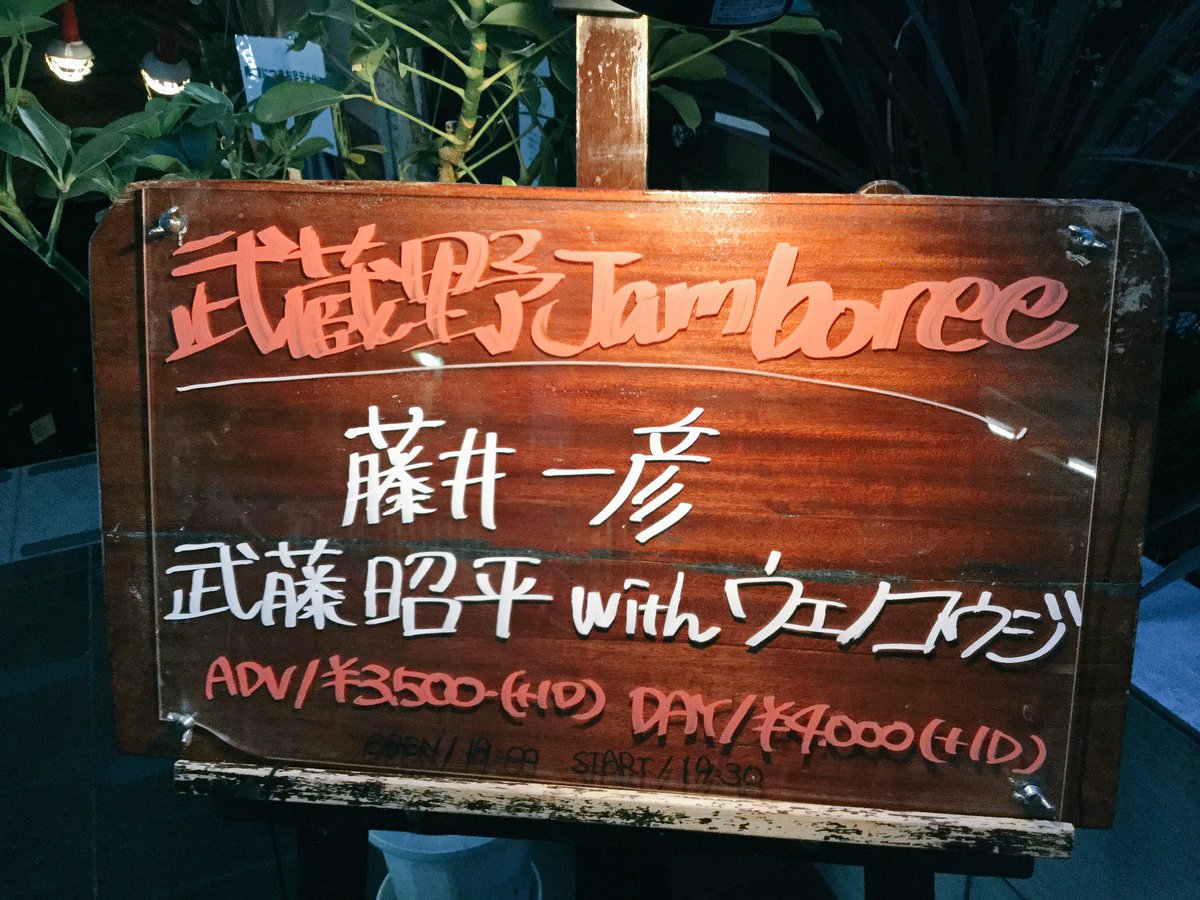 武蔵野Jamboree
藤井一彦
武藤昭平withウエノコウジ
ADV/¥3,500-(+1D) DAY/¥4.000(+1D)
START/19:30